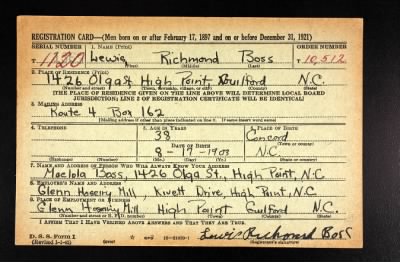 REGISTRATION CARD—(Men born on or after February 17, 1897 and on or before December 31, 1921)
SERIAL NUMBER 1. NAME (Print) ORDER NUMBER
T. 1120 Lewis Richmond Boss 10,512
(First) (Middle) (Last)
2. PLACE OF RESIDENCE (Print)
1426 Olga St High Point, Guilford N.C.
(Number and street) (Town, township, village, or city) (County) (State)
[THE PLACE OF RESIDENCE GIVEN ON THE LINE ABOVE WILL DETERMINE LOCAL BOARD
JURISDICTION; LINE 2 OF REGISTRATION CERTIFICATE WILL BE IDENTICAL]
3. MAILING ADDRESS
Route 4 Box 162
[Mailing address if other than place indicated on line 2. If same insert word same]
4. TELEPHONE 5. AGE IN YEARS 6. PLACE OF BIRTH
38 Concord
DATE OF BIRTH (Town or county)
8-19-1903 N.C.
(Exchange) (Number) (Mo.) (Day) (Yr.) (State or country)
7. NAME AND ADDRESS OF PERSON WHO WILL ALWAYS KNOW YOUR ADDRESS
Boss, 1426 Olga St., High Point, N.C
8. EMPLOYER'S NAME AND ADDRESS
Glenn Hosiery Mill, Kivett Drive, High Point, N.C
9. PLACE OF EMPLOYMENT OR BUSINESS
Glenn Hosiery Mill High Point Guilford N.C.
(Number and street or R. F. D. number) (Town) (County) (State)
I AFFIRM THAT I HAVE VERIFIED ABOVE ANSWERS AND THAT THEY ARE TRUE.
D. S. S. Form 1
(Revised 1-1-42) (over) Lewis Richmond Boss
(Registrant's signature)